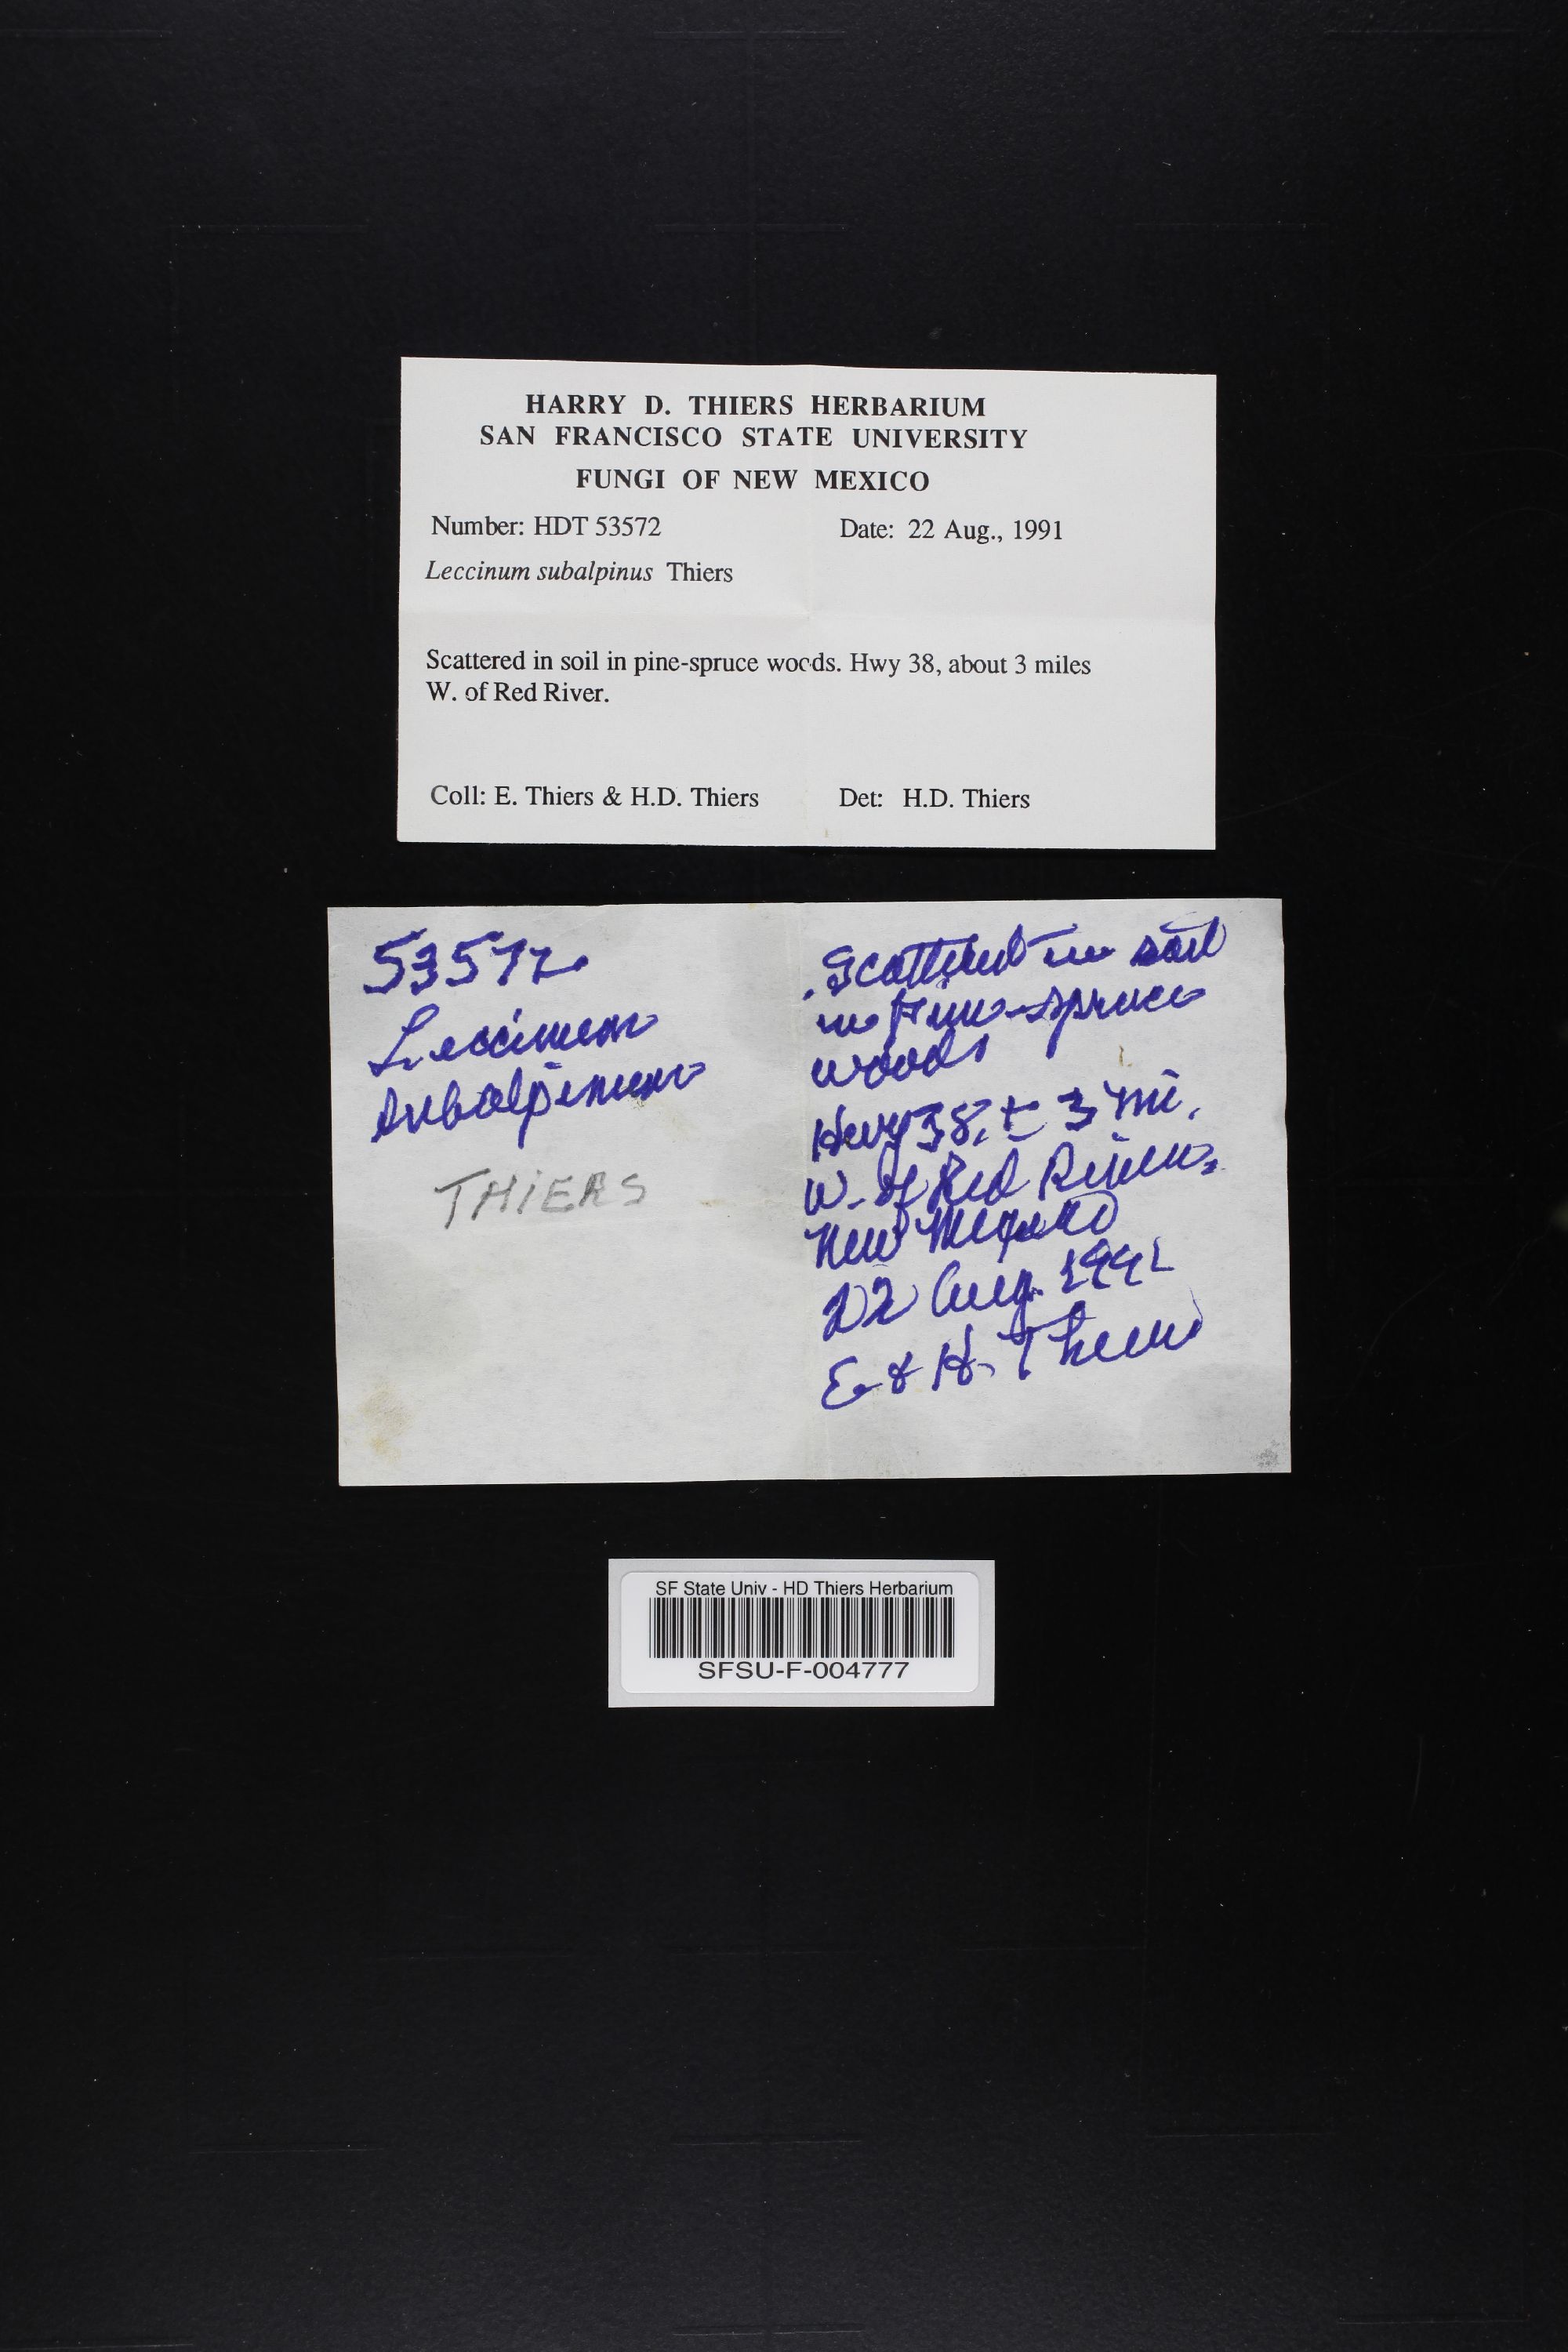 HARRY D. THIERS HERBARIUM
SAN FRANCISCO STATE UNIVERSITY
FUNGI OF NEW MEXICO
Number: HDT 53572 Date: 22 Aug., 1991
Leccinum subalpinus Thiers
Scattered in soil in pine-spruce woods. Hwy 38, about 3 miles
W. of Red River.
Coll: E. Thiers & H.D. Thiers Det: H.D. Thiers
53572
Leccinum
subalpinum
THIERS
Scattered in soil
in pine-spruce
woods
Hwy 38, ± 3 mi.
W. of Red River,
New Mexico
22 Aug. 1991
E. & H. Thiers
SF State Univ - HD Thiers Herbarium
SFSU-F-004777